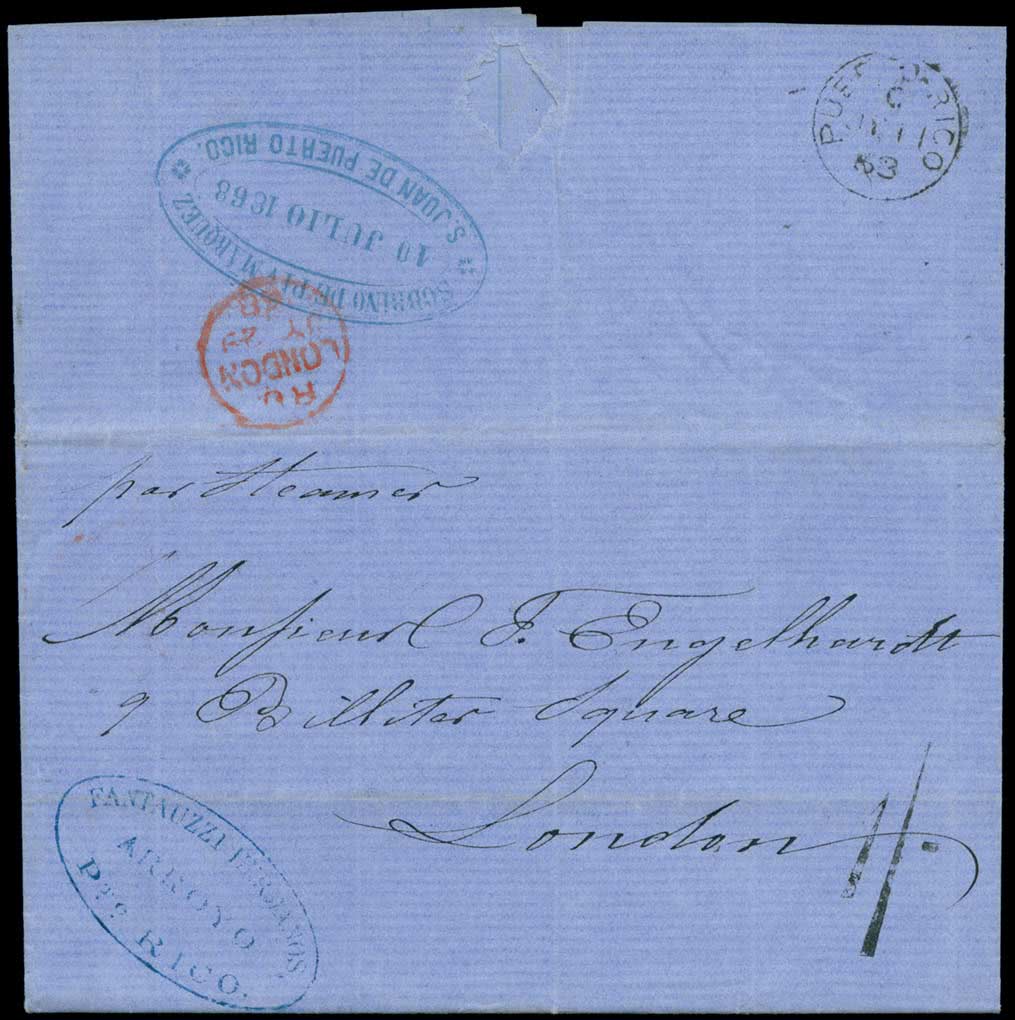 PUERTO RICO
JY 11
63
SOBRINO DE PEY MARQUEZ
10 JULIO 1863
S. JUAN DE PUERTO RICO.
LONDON
JY 29
par Steamer
Monsieur F. Engelhardt
9 Billiter Square
London
1/.
FANTAUZZI HERMANOS
ARROYO
Pto. RICO.